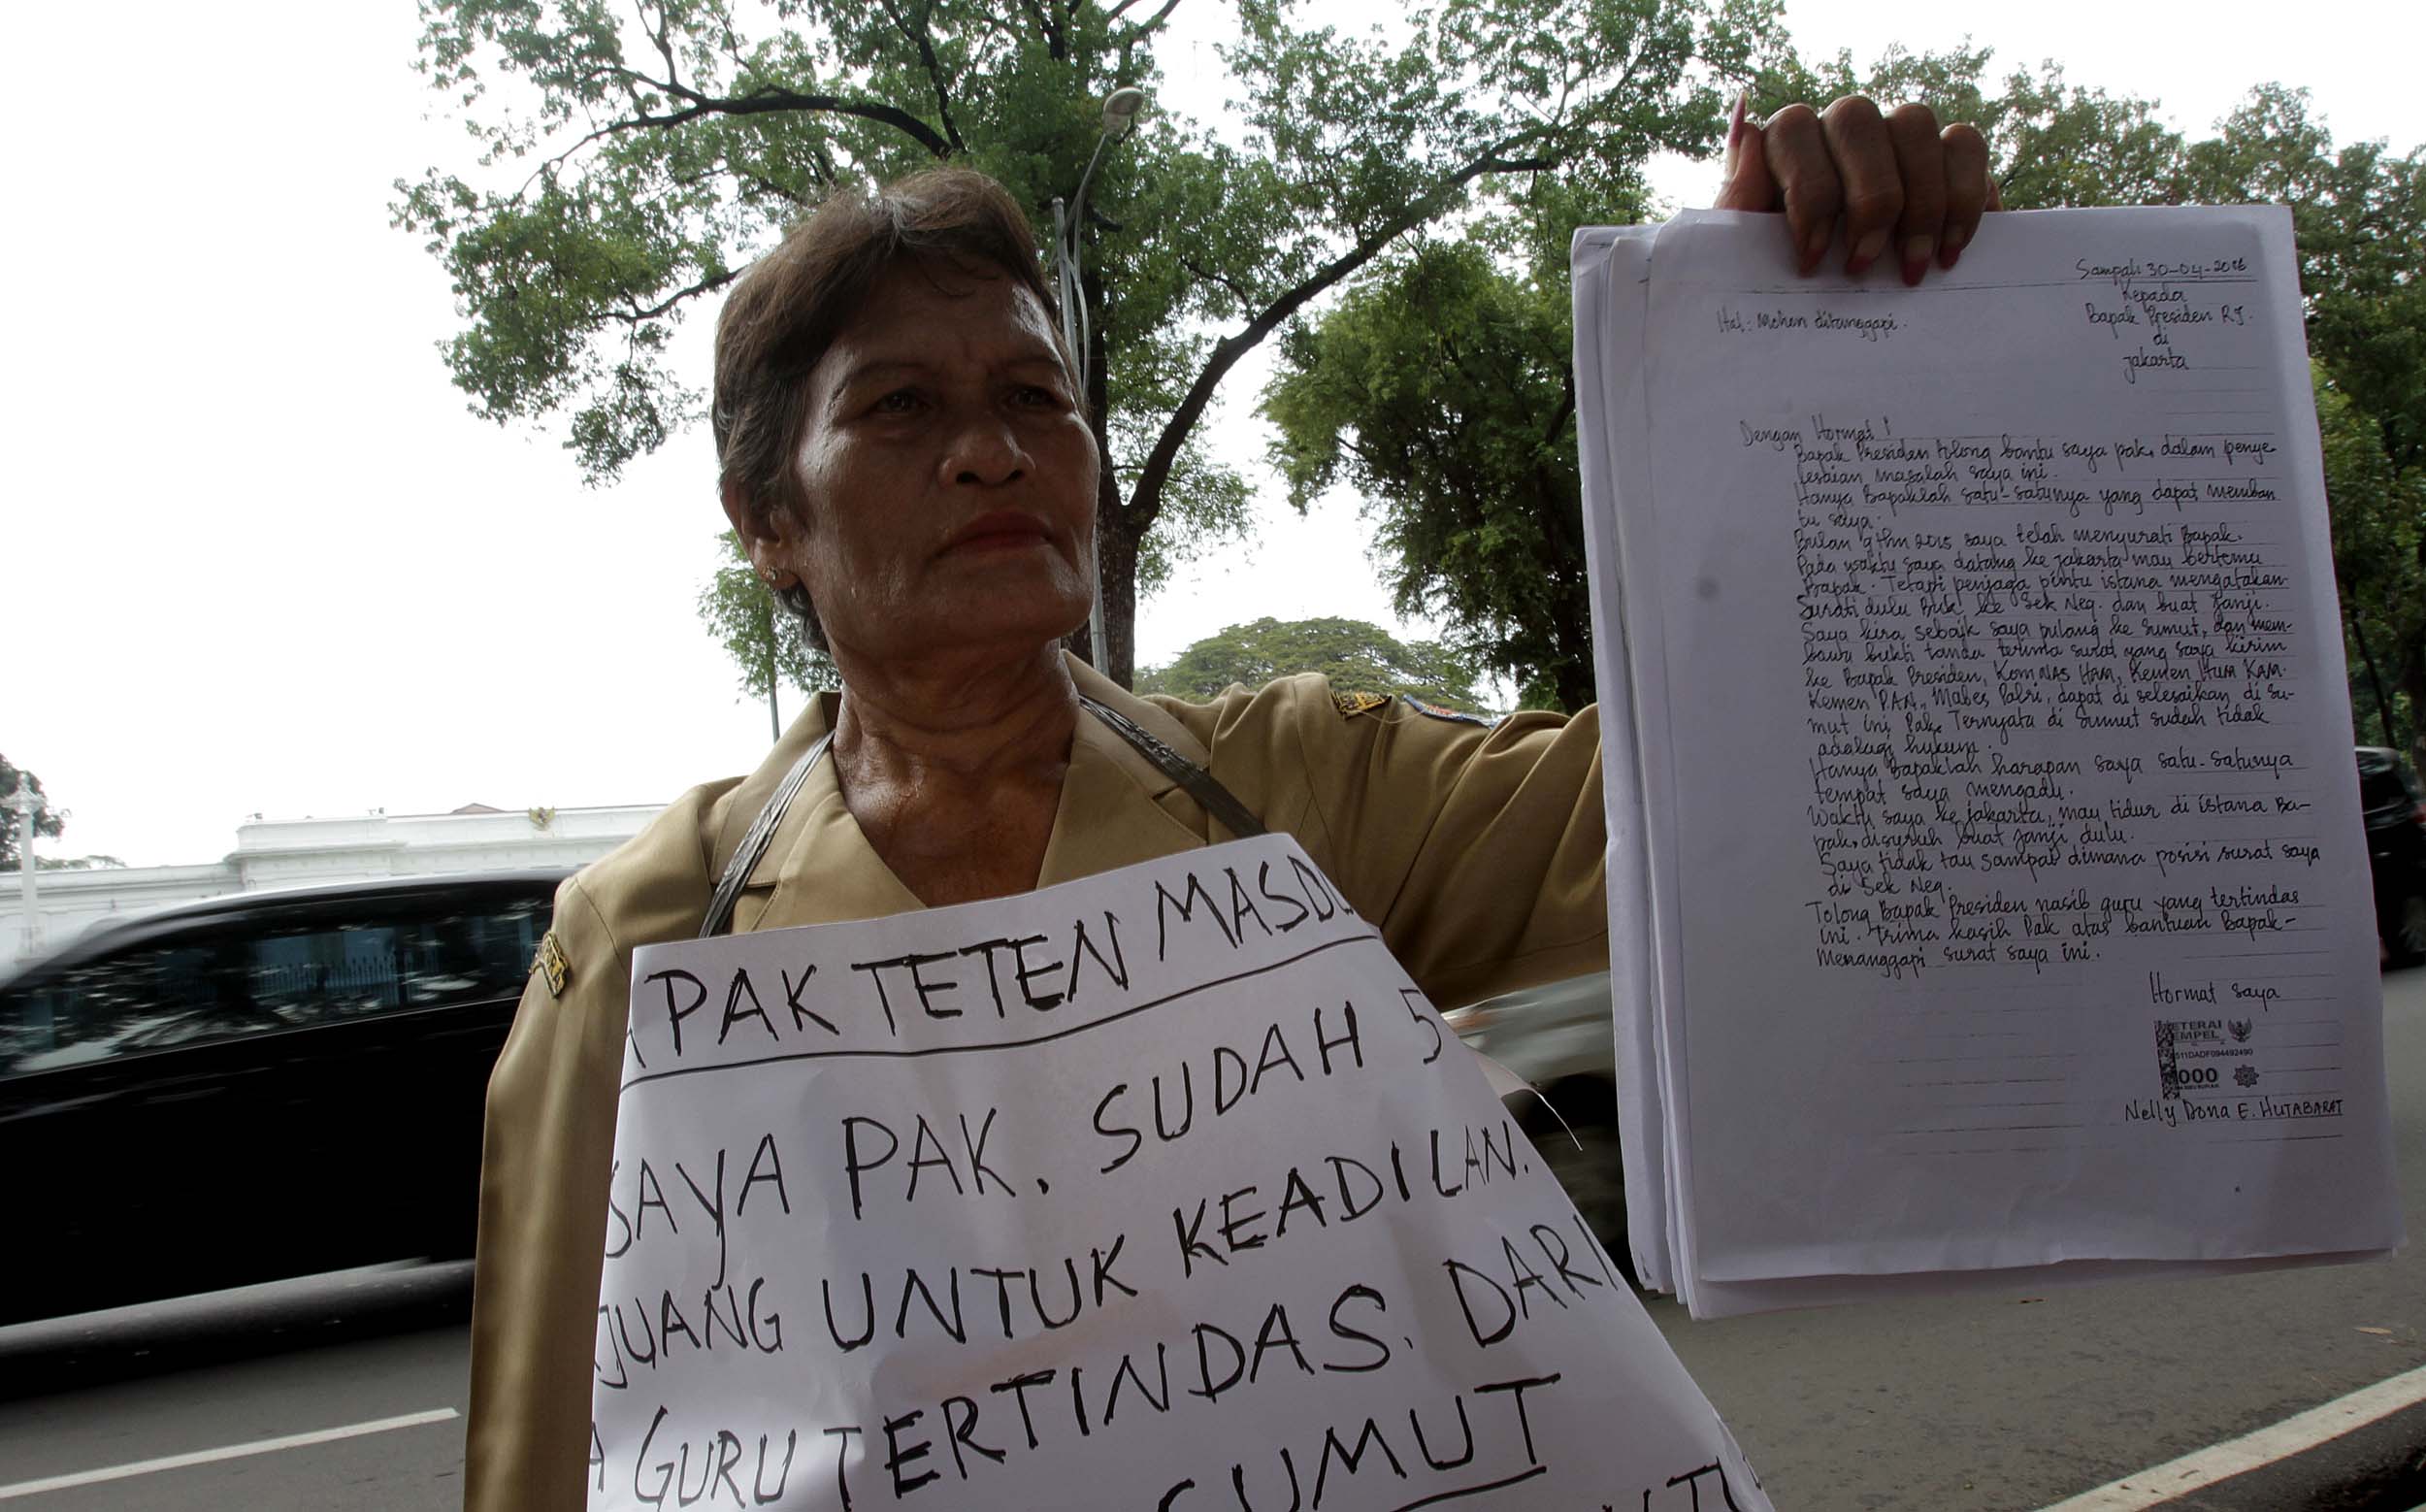 PAK TETEN MASDU
SAYA PAK. SUDAH 5
JUANG UNTUK KEADILAN.
A GURU TERTINDAS. DARI
SUMUT
Sampali 30-04-2016
Kepada
Hal: Mohon ditanggapi.
Bapak Presiden RI.
di
Jakarta
Dengan Hormat!
Bapak Presiden tolong bantu saya pak, dalam penye-
lesaian masalah saya ini.
Hanya Bapaklah satu-satunya yang dapat memban
tu saya.
Bulan 9 thn 2015 saya telah menyurati Bapak.
Pada waktu saya datang ke Jakarta mau bertemu
Bapak. Tetapi penjaga pintu istana mengatakan
Surati dulu Buk ke Sek Neg. dan buat Janji.
Saya kira sebaik saya pulang ke Sumut, dan mem-
bawa bukti tanda terima surat yang saya kirim
ke Bapak Presiden, Kom NAS HAM, Kemen Hum KAM.
Kemen PAN, Mabes Polri, dapat di selesaikan di su-
mut ini Pak. Ternyata di sumut sudah tidak
adalagi hukum.
Hanya Bapaklah harapan saya satu-satunya
tempat saya mengadu.
Waktu saya ke Jakarta, mau tidur di istana Ba-
pak, disuruh buat janji dulu.
Saya tidak tau sampai dimana posisi surat saya
di Sek Neg.
Tolong Bapak Presiden nasib guru yang tertindas
ini. Trima kasih Pak atas bantuan Bapak-
Menanggapi surat saya ini.
Hormat saya
METERAI
TEMPEL
511DADF094492490
000
Nelly Dona E. HUTABARAT